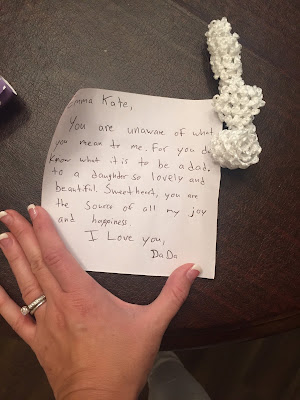 mma Kate,
You are unaware of what
you mean to me. For you do
know what it is to be a dad
to a daughter so lovely and
beautiful. Sweetheart, you are
the source of all my joy
and happiness.
I Love you,
DaDa